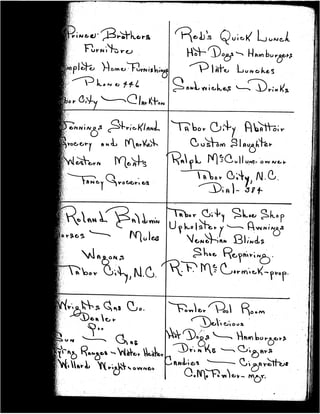 Prince Brothers
Furniture
mplete Home Furnishing
Phone 446
bor City — Clarkton
Red's Quick Lunch
Hot Dogs — Hamburgers
Plate Lunches
Sandwiches — Drinks
Jennings Strickland
Grocery and Market
Western Meats
Fancy Groceries
Tabor City Abattoir
Custom Slaughter
Ralph McCollum-owner
Tabor City, N.C.
Dial-384
Roland Baldwin
orses — Mules
Wagons
Tabor City, N.C.
Tabor City Shoe Shop
Upholstery — Awnings
Venetian Blinds
Shoe Repairing
R.F. McCormick-prop.
Wright's Gas Co.
Dealer
Sun — Gas
Ranges - Water Heater
Willard Wright-owner
Fowler Pool Room
Delicious
Hot Dogs — Hamburgers
Drinks — Cigars
Candies — Cigarettes
C.M. Fowler-mgr.